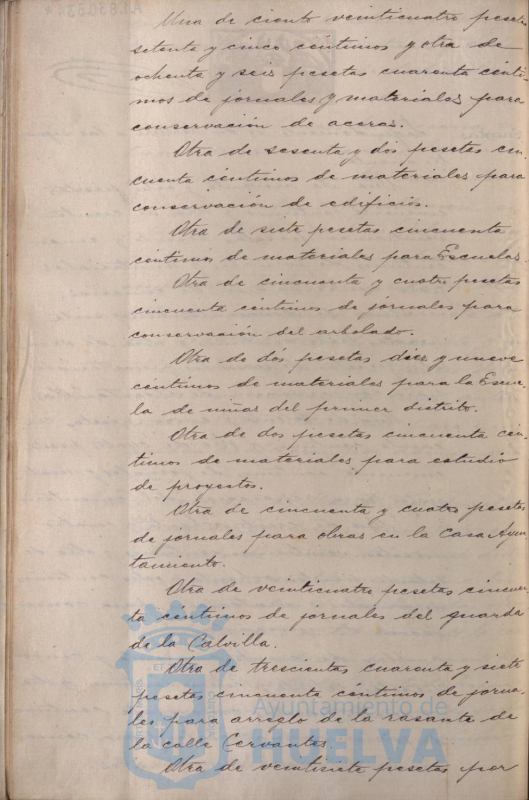 Una de ciento veinticuatro pesetas
setenta y cinco céntimos y otra de
ochenta y seis pesetas cuarenta cénti
mos de jornales y materiales para
conservación de aceras.
Otra de sesenta y dos pesetas cin
cuenta céntimos de materiales para
conservación de edificios.
Otra de siete pesetas cincuenta
céntimos de materiales para Escuelas.
Otra de cincuenta y cuatro pesetas
cincuenta céntimos de jornales para
conservación del arbolado.
Otra de dos pesetas diez y nueve
céntimos de materiales para la Escue
la de niñas del primer distrito.
Otra de dos pesetas cincuenta cén
timos de materiales para estudio
de proyectos.
Otra de cincuenta y cuatro pesetas
de jornales para obras en la Casa Ayun
tamiento.
Otra de veinticuatro pesetas cincuen
ta céntimos de jornales del guarda
de la Calvilla.
Otra de trescientas cuarenta y siete
pesetas cincuenta céntimos de jorna
les para arreglo de la rasante de
la calle Cervantes.
Otra de veintisiete pesetas por
Ayuntamiento de
HUELVA